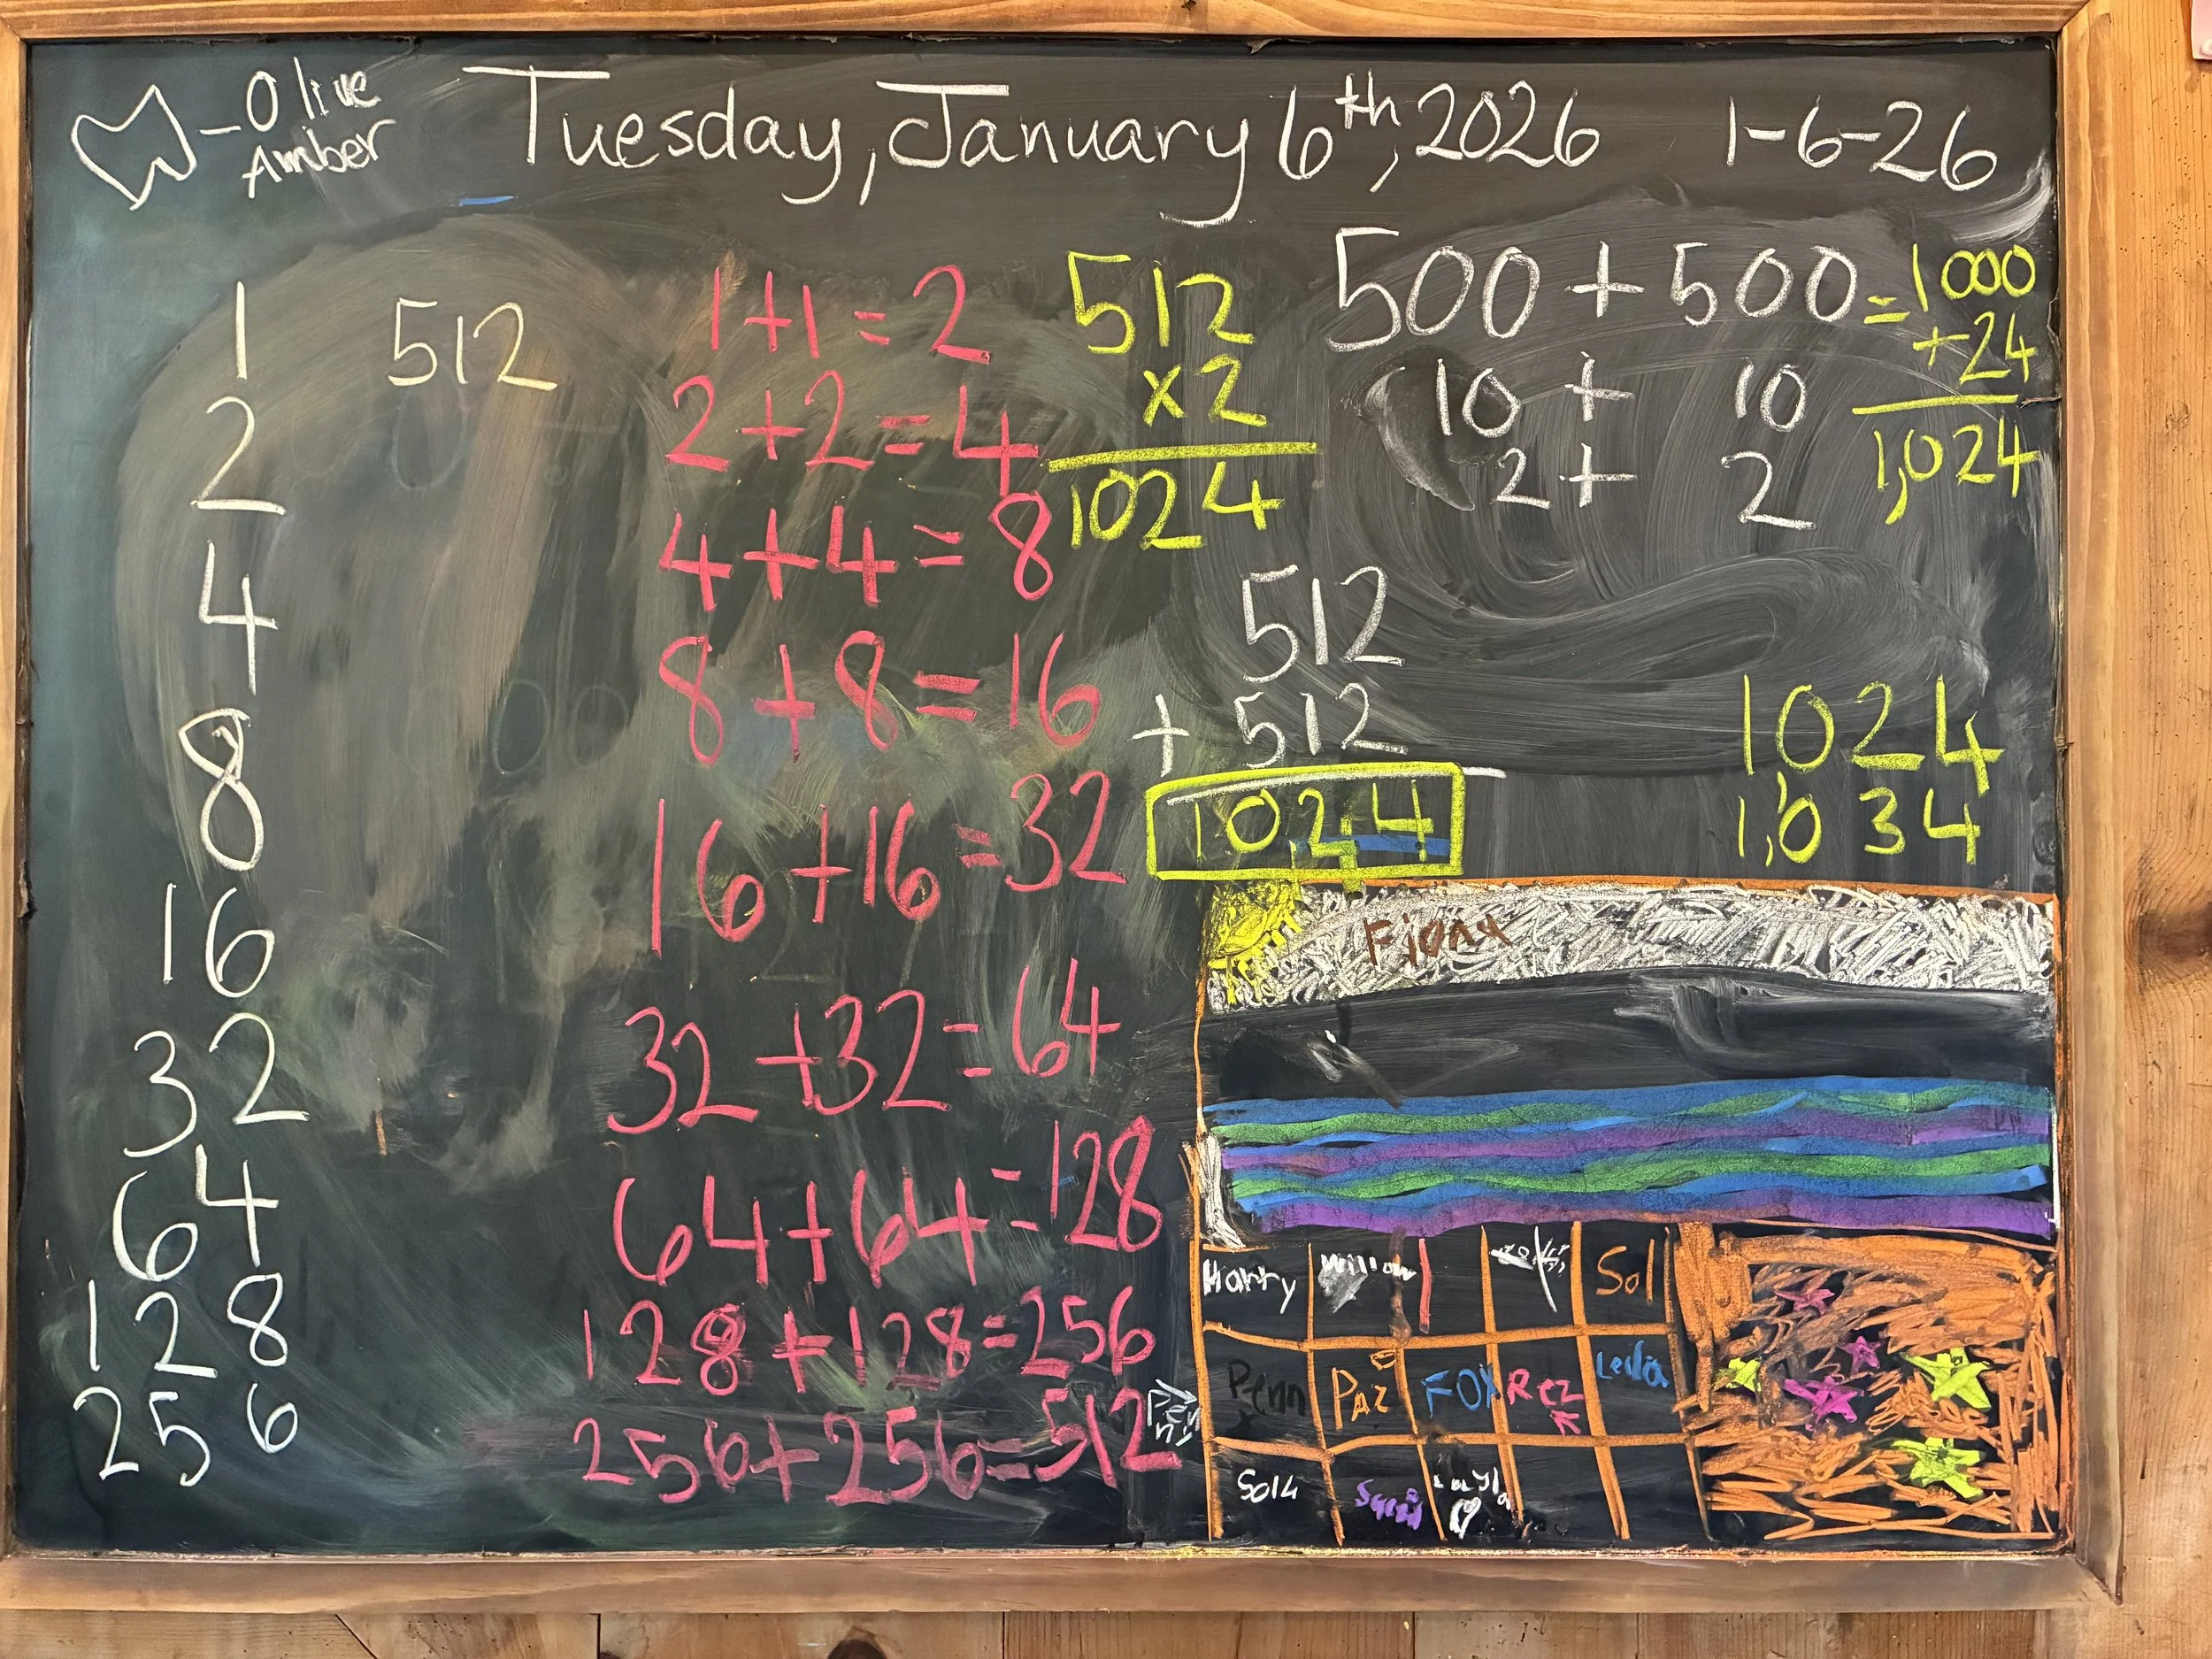 Olive
Amber
Tuesday, January 6th, 2026
1-6-26
1
2
4
8
16
32
64
128
256
512
1+1=2
2+2=4
4+4=8
8+8=16
16+16=32
32+32=64
64+64=128
128+128=256
256+256=512
512
x2
1024
500+500=1000
+24
1,024
10+10
2+2
512
+512
1024
1024
1,034
Fiona
Harry
Willow
Sol
Penn
Paz
FOX
Rez
Leila
Layla